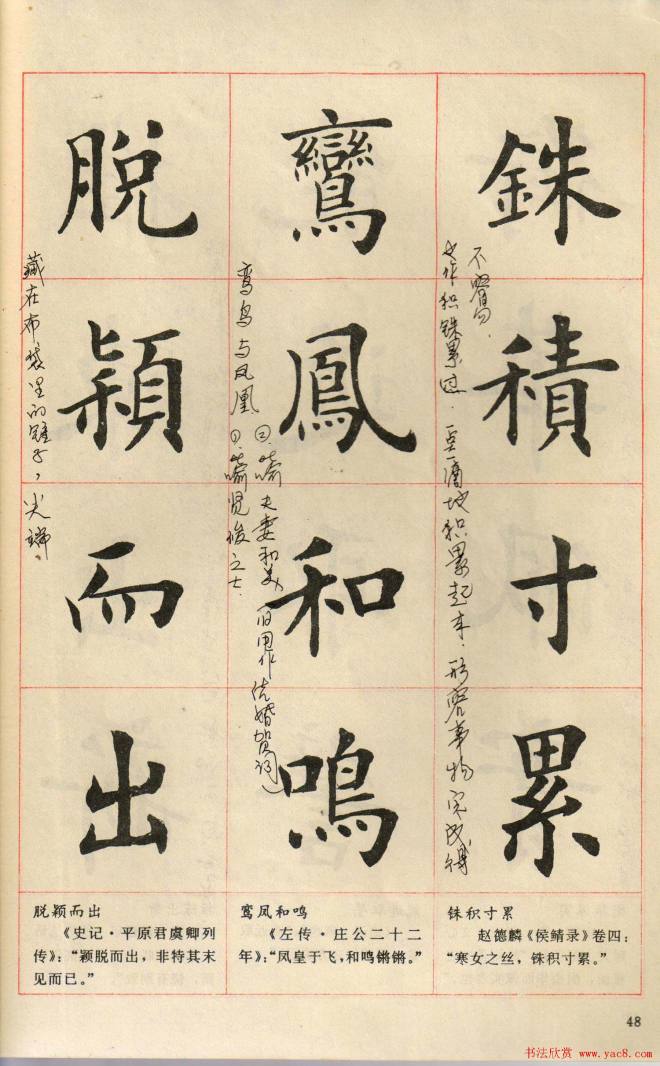 銖積寸累
也作积铢累寸.一点一滴地积累起来.形容事物完成得
不容易.
鸞鳳和鳴
②.喻夫妻和美(旧用作结婚贺词)
鸾鸟与凤凰 ①.喻贤俊之士.
脱穎而出
藏在布袋里的锥子,尖端.
脱颖而出
《史记·平原君虞卿列
传》:“颖脱而出,非特其末
见而已。”
鸾凤和鸣
《左传·庄公二十二
年》:“凤皇于飞,和鸣锵锵。”
铢积寸累
赵德麟《侯鲭录》卷四:
“寒女之丝,铢积寸累。”
48
书法欣赏 www.yac8.com